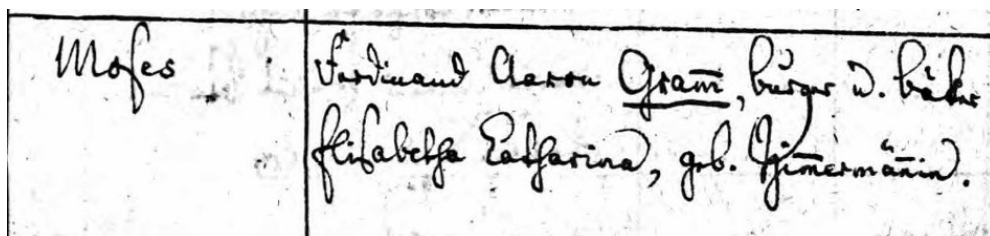 Moses
Ferdinand Aaron Gram̅, burger u. bäker
Elisabetha Catharina, geb. Zim̅ermän̅in.